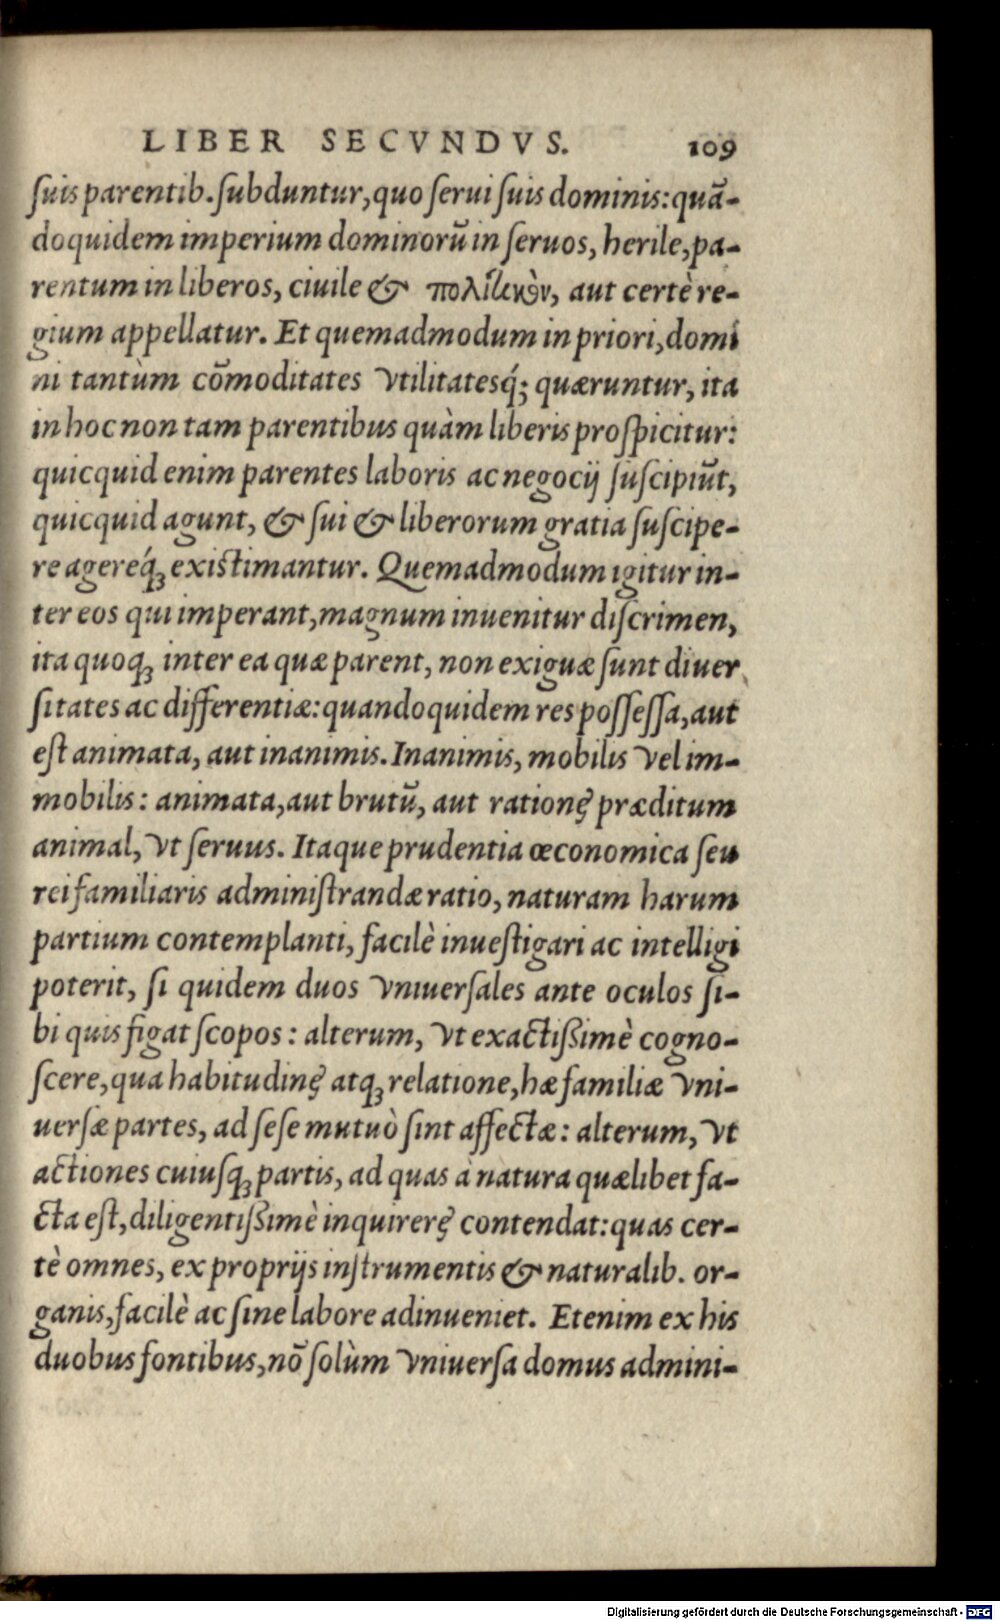 LIBER SECVNDVS. 109
ſuis parentib. ſubduntur, quo ſerui ſuis dominis: quā-
doquidem imperium dominorū in ſeruos, herile, pa-
rentum in liberos, ciuile & πολιτικὸν, aut certè re-
gium appellatur. Et quemadmodum in priori, domi
ni tantùm cōmoditates vtilitatesq́; quæruntur, ita
in hoc non tam parentibus quàm liberis proſpicitur:
quicquid enim parentes laboris ac negocij ſuſcipiūt,
quicquid agunt, & ſui & liberorum gratia ſuſcipe-
re agereq́ꝫ existimantur. Quemadmodum igitur in-
ter eos qui imperant, magnum inuenitur diſcrimen,
ita quoqꝫ inter ea quæ parent, non exiguæ ſunt diuer
ſitates ac differentiæ: quandoquidem res poſſeſſa, aut
eſt animata, aut inanimis. Inanimis, mobilis vel im-
mobilis: animata, aut brutū, aut rationę præditum
animal, vt ſeruus. Itaque prudentia œconomica ſeu
rei familiaris adminiſtrandæ ratio, naturam harum
partium contemplanti, facilè inueſtigari ac intelligi
poterit, ſi quidem duos vniuerſales ante oculos ſi-
bi quis figat ſcopos: alterum, vt exactißimè cogno-
ſcere, qua habitudinę atqꝫ relatione, hæ familiæ vni-
uerſæ partes, ad ſeſe mutuò ſint affectæ: alterum, vt
actiones cuiuſqꝫ partis, ad quas à natura quælibet fa-
cta eſt, diligentißimè inquirerę contendat: quas cer-
tè omnes, ex proprijs inſtrumentis & naturalib. or-
ganis, facilè ac ſine labore adinueniet. Etenim ex his
duobus fontibus, nō ſolùm vniuerſa domus admini-
Digitalisierung gefördert durch die Deutsche Forschungsgemeinschaft - DFG